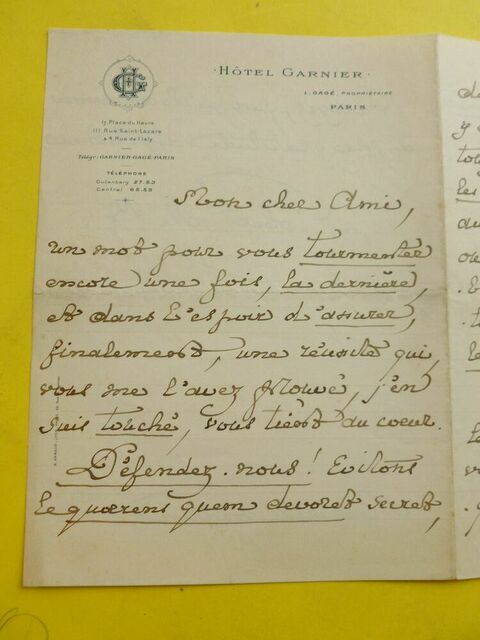 HÔTEL GARNIER
L. GAGÉ, PROPRIÉTAIRE
PARIS
17, Place du Havre
111, Rue Saint-Lazare
& 4, Rue de l'Isly
Télégr: GARNIER-GAGÉ-PARIS
TÉLÉPHONE
Gutenberg 27.63
Central 66.59
Mon cher Ami,
un mot pour vous tourmenter
encore une fois, la dernière,
et dans l'espoir d'assurer,
finalement, une réussite qui,
vous me l'avez prouvé, j'en
suis touché, vous tient du coeur.
Défendez-nous! Evitons
le quærens quem devoret secret,
de
y
tou
les
au
ou